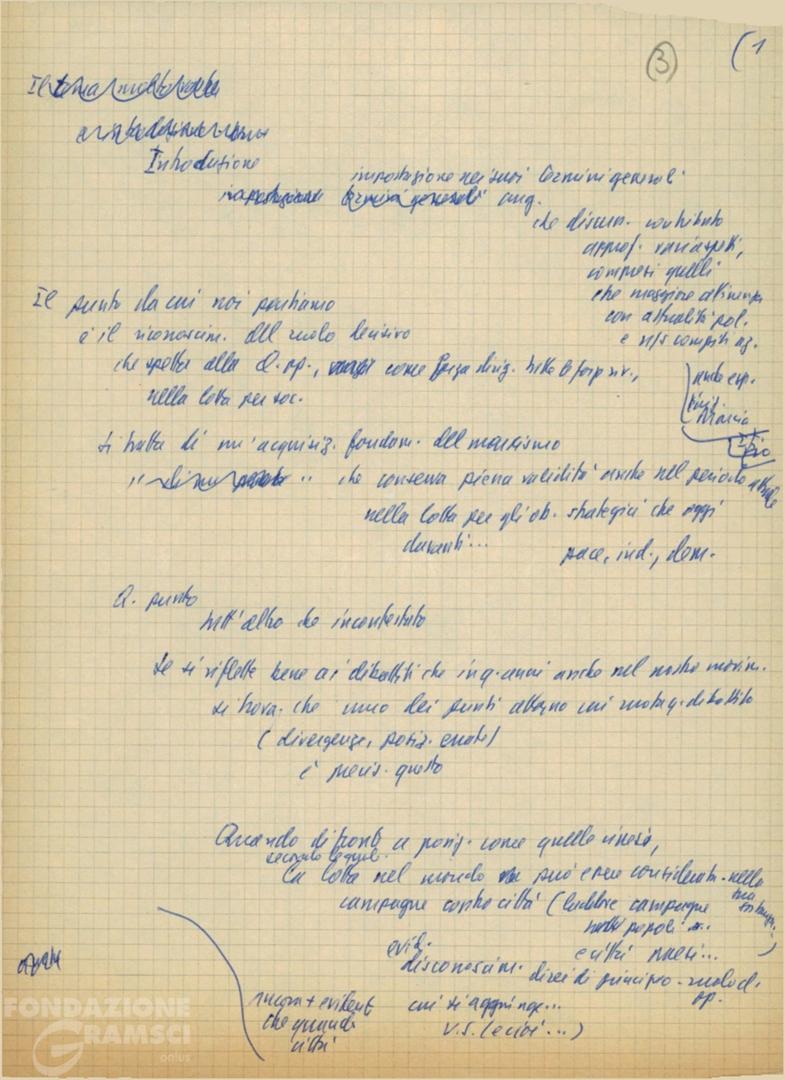 (3)
(1
Il tema molto
Introduzione
impostazione nei suoi termini generali
impostazione termini generali ang.
che discuss. contributo
approf. vari aspetti,
compresi quelli
che maggiore attinenza
con attualità pol.
e ns/ compiti az.
Il punto da cui noi partiamo
è il riconoscim. del ruolo decisivo
che spetta alla cl. op., come forza dirig. tutte le forze riv.,
nella lotta per soc.
anche esp.
Francia
si tratta di un'acquisiz. fondam. del marxismo
che conserva piena validità anche nel periodo attuale
nella lotta per gli ob. strategici che oggi
davanti...
pace, ind., dem.
Q. punto
tutt'altro che incontestato
Se si riflette bene ai dibattiti che in q. anni anche nel nostro movim.
si trova che uno dei punti attorno cui ruota q. dibattito
(divergenze, posiz. errate)
è precis. questo
Quando di fronte a posiz. come quelle cinesi,
secondo le quali
la lotta nel mondo può essere considerata
campagne contro città (laddove campagne
popoli ...
e città paesi...
evid.
disconoscim. direi di principio - ruolo cl.
op.
ancora + evidente
che quando
città
cui si aggiunge...
U.S. (e cioè ...)
FONDAZIONE
GRAMSCI
onlus